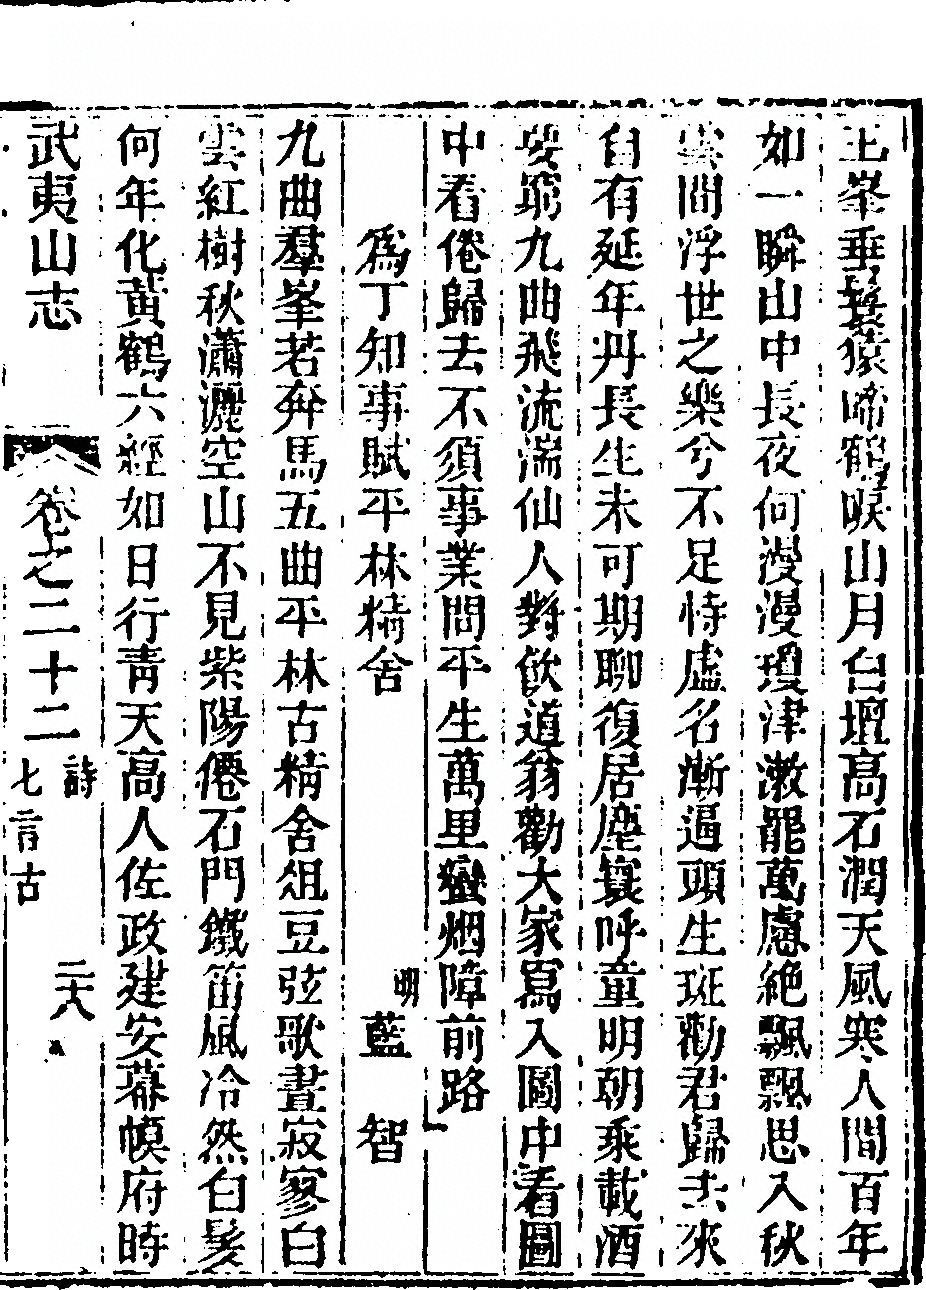 玉峯垂鬟猿啼鶴唳山月白壇高石潤天風寒人間百年
如一瞬山中長夜何漫漫瓊津漱罷萬慮絶飄飄思入秋
雲間浮世之樂兮不足恃虛名漸逼頭生斑勸君歸去來
自有延年丹長生未可期聊復居塵寰呼童明朝乘載酒
㝠窮九曲飛流湍仙人對飲道翁勸大家寫入圖中看圖
中看倦歸去不須事業問平生萬里蠻烟障前路
爲丁知事賦平林精舍 明藍智
九曲羣峯若奔馬五曲平林古精舍俎豆弦歌晝寂寥白
雲紅樹秋瀟灑空山不見紫陽僊石門鐵笛風冷然白髮
何年化黃鶴六經如日行青天高人佐政建安幕幙府時
武夷山志 卷之二十二 詩 七言古 二十八